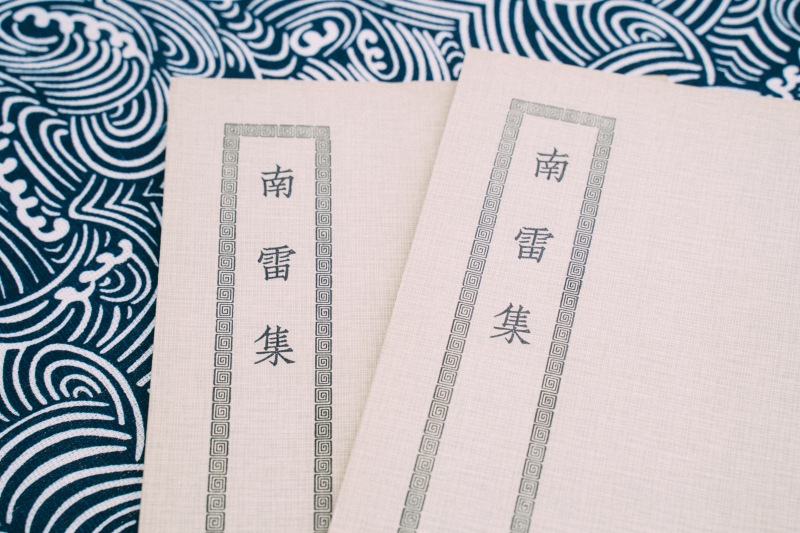 南雷集
南雷集